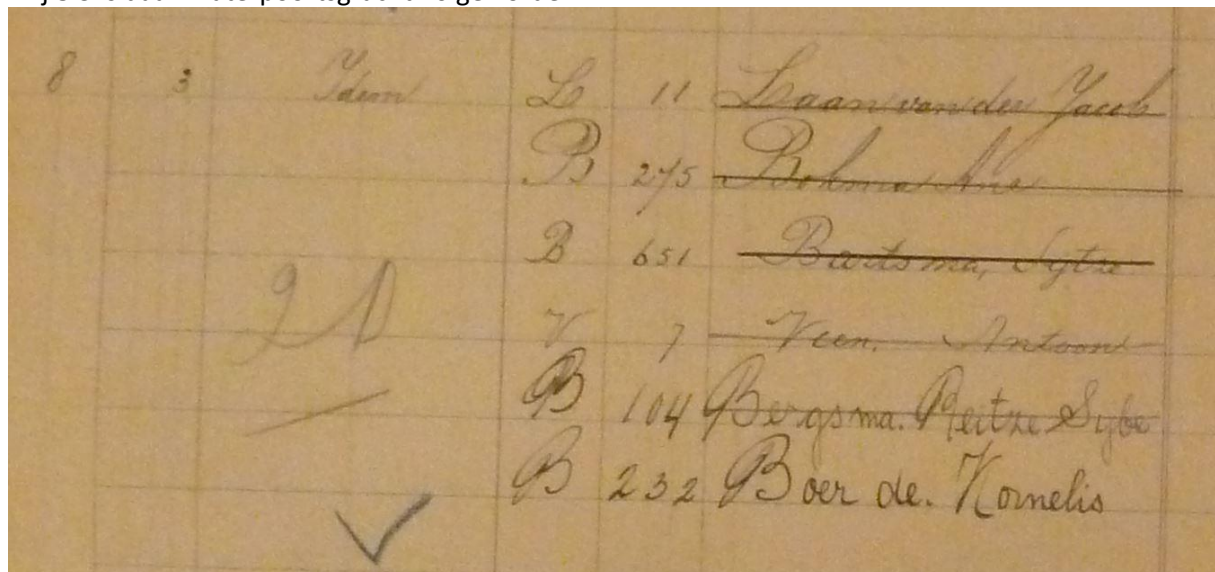 8 3 Idem L 11 Laan van der Jacob
B 275 Bokma Ana
B 651 Baitsma, Sytze
V 7 Veen. Antoon
2 D
B 104 Bergsma. Reitze Sybe
B 232 Boer de. Kornelis